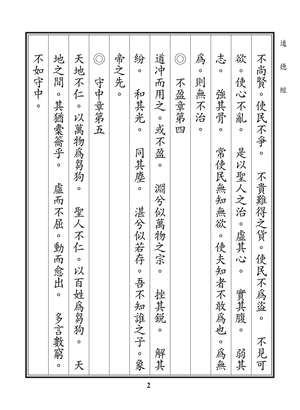 道德經
不尚賢。使民不爭。不貴難得之貨。使民不為盜。不見可
欲。使心不亂。是以聖人之治。虛其心。實其腹。弱其
志。強其骨。常使民無知無欲。使夫知者不敢為也。為無
為。則無不治。
◎ 不盈章第四
道冲而用之。或不盈。淵兮似萬物之宗。挫其銳。解其
紛。和其光。同其塵。湛兮似若存。吾不知誰之子。象
帝之先。
◎ 守中章第五
天地不仁。以萬物為芻狗。聖人不仁。以百姓為芻狗。天
地之間。其猶橐籥乎。虛而不屈。動而愈出。多言數窮。
不如守中。
2